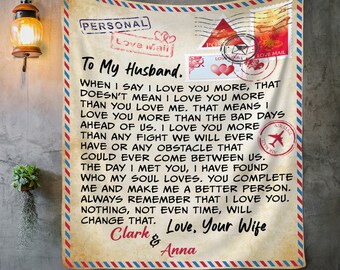 PERSONAL
Love mail
LOVE MAIL
LOVE MAIL
To My Husband,
WHEN I SAY I LOVE YOU MORE, THAT
DOESN'T MEAN I LOVE YOU MORE
THAN YOU LOVE ME. THAT MEANS I
LOVE YOU MORE THAN THE BAD DAYS
AHEAD OF US. I LOVE YOU MORE
THAN ANY FIGHT WE WILL EVER
HAVE OR ANY OBSTACLE THAT
COULD EVER COME BETWEEN US.
THE DAY I MET YOU, I HAVE FOUND
WHO MY SOUL LOVES. YOU COMPLETE
ME AND MAKE ME A BETTER PERSON.
ALWAYS REMEMBER THAT I LOVE YOU.
NOTHING, NOT EVEN TIME, WILL
CHANGE THAT. Love, Your Wife
Clark
&
Anna